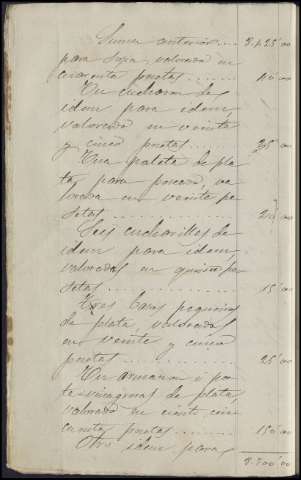 Suma anterior ... 3,425'00
para sopa, valorado en
cincuenta pesetas ...... 50'00
Un cucharon de
idem para idem,
valorado en veinte
y cinco pesetas ..... 25'00
Una paleta de pla
ta para pescado, va
lorada en veinte pe
setas ............ 20'00
Seis cucharillas de
idem para idem,
valoradas en quince pe
setas .............. 15'00
Tres tazas pequeñas
de plata, valoradas
en veinte y cinco
pesetas ............. 25'00
Un armazon ó por
ta-vinagreras de plata,
valorado en ciento cin
cuenta pesetas ..... 150'00
Otro idem para
3.700'00